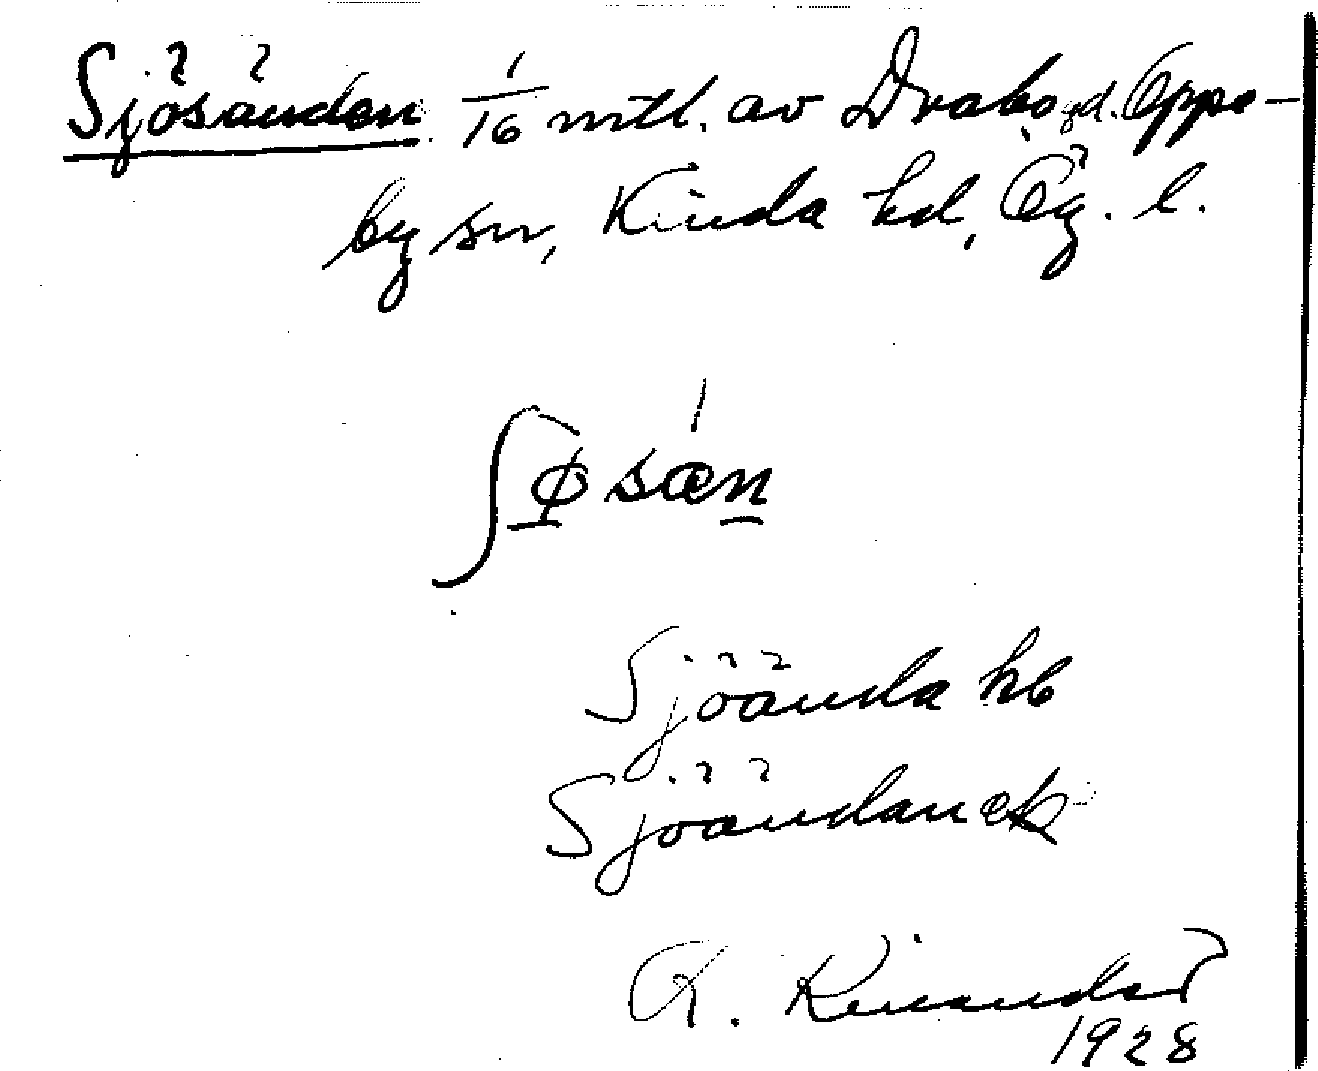 Sjösänden 1/16 mtl. av Drabo gd. Oppe-
by sn, Kinda hd, Ög. l.
ʃøsæn
Sjöända hb
Sjöändan ek
R. Kinander
1928